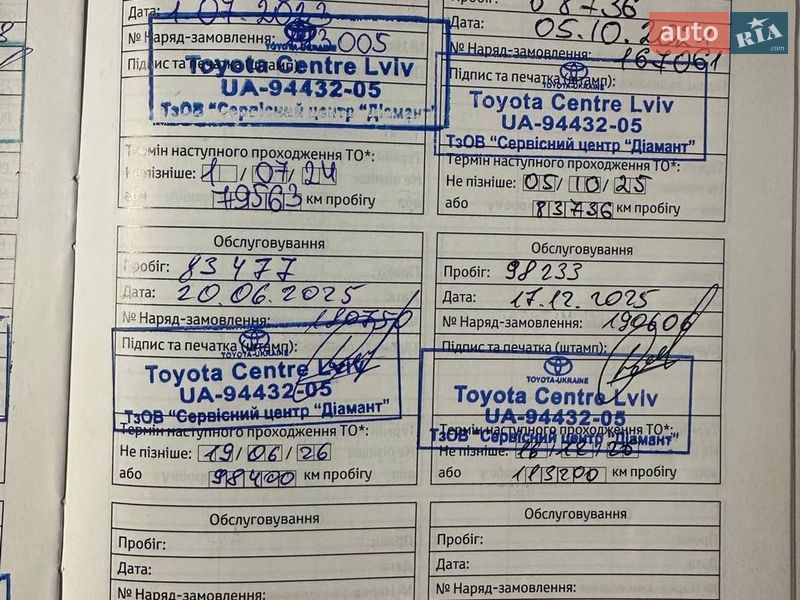 Дата: 1 07.2023
№ Наряд-замовлення: 3005
Підпис та печатка (штамп):
TOYOTA-UKRAINE
Toyota Centre Lviv
UA-94432-05
ТзОВ "Сервісний центр "Діамант"
Термін наступного проходження ТО*:
Не пізніше: 1 / 07 / 24
або 79563 км пробігу
68736
Дата: 05.10.
№ Наряд-замовлення: 167061
Підпис та печатка (штамп):
TOYOTA-UKRAINE
Toyota Centre Lviv
UA-94432-05
ТзОВ "Сервісний центр "Діамант"
Термін наступного проходження ТО*:
Не пізніше: 05 / 10 / 25
або 83736 км пробігу
auto RIA.com
Обслуговування
Пробіг: 83477
Дата: 20.06.2025
№ Наряд-замовлення: 180750
Підпис та печатка (штамп):
TOYOTA-UKRAINE
Toyota Centre Lviv
UA-94432-05
ТзОВ "Сервісний центр "Діамант"
Термін наступного проходження ТО*:
Не пізніше: 19 / 06 / 26
або 98400 км пробігу
Обслуговування
Пробіг: 98233
Дата: 17.12.2025
№ Наряд-замовлення: 190606
Підпис та печатка (штамп):
TOYOTA-UKRAINE
Toyota Centre Lviv
UA-94432-05
ТзОВ "Сервісний центр "Діамант"
Термін наступного проходження ТО*:
Не пізніше: 16 / 12 / 26
або 113200 км пробігу
Обслуговування
Пробіг:
Дата:
№ Наряд-замовлення:
Обслуговування
Пробіг:
Дата:
№ Наряд-замовлення: